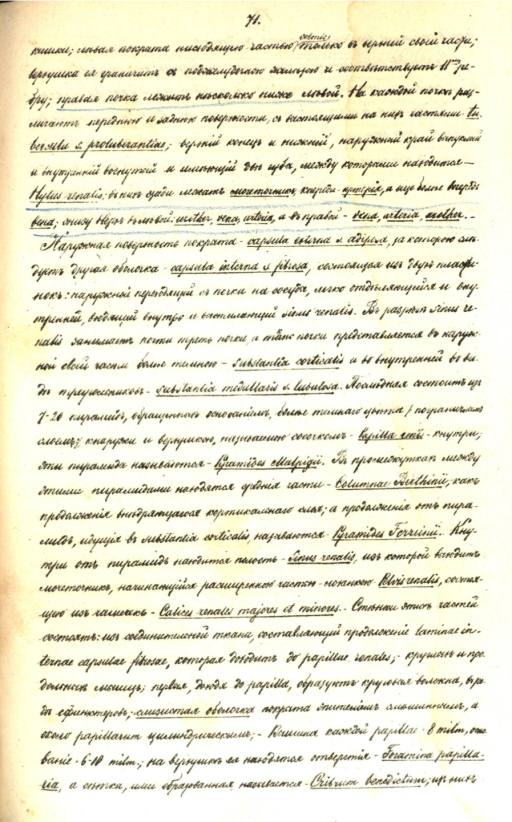 71.
кишки; лѣвая покрыта нисходящею частью только въ верхней своей части;
верхушка ея граничитъ съ поджелудочною железою и соотвѣтствуетъ 11му ре-
бру; правая почка лежитъ нѣсколько ниже лѣвой. На каждой почкѣ раз-
личаютъ переднюю и заднюю поверхности, съ выстоящими на нихъ частями tu
s. protuberantiae; верхній конецъ и нижній, наружный край выпуклый
и внутренній вогнутый и имѣющій двѣ губы, между которыми находится —
Hylus renalis; въ нихъ сзади лежатъ мочеточникъ, кпереди артерія, а еще болѣе впередъ
вена; снизу вверхъ въ лѣвой: urether, vena, arteria, а въ правой - vena, arteria, urether. -
Наружная поверхность покрыта - capsula externa s. adiposa, за которою слѣ-
дуетъ другая оболочка - capsula interna s. fibrosa, состоящая изъ двухъ пласти-
нокъ: наружной переходящей съ почки на сосуды, легко отдѣляющейся и вну-
тренней, входящей внутрь и выстилающей sinus renalis. Въ разрѣзѣ sinus re-
nalis занимаетъ почти треть почки, и тѣло почки представляется въ наруж-
ной своей части болѣе темною - substantia corticalis и во внутренней въ ви-
дѣ треугольниковъ - substantia medullaris s. tubulosa. Послѣдняя состоитъ изъ
7-20 пирамидъ, обращенныхъ основаніемъ, болѣе темнаго цвѣта /пограничнымъ
слоемъ/ кнаружи и верхушкою, называемою сосочкомъ - papilla - кнутри;
эти пирамиды называются - Pyramides Malpigii. Въ промежуткахъ между
этими пирамидами находятся части - Columnae Berthinii, какъ
продолженія коркового слоя; а продолженія отъ пира-
мидъ, идущія въ substantia corticalis, называются - Pyramides Ferreinii. Кну-
три отъ пирамидъ находится полость - Sinus renalis, изъ которой выходитъ
мочеточникъ, начинающійся расширенною частью - лоханкою Pelvis renalis, состоя-
щею изъ чашечекъ - Calices renales majores et minores. - Стѣнки этихъ частей
состоятъ: изъ соединительной ткани, составляющей продолженіе laminae in-
ternae capsulae fibrosae, которая доходитъ до papillae renales; - круговыхъ и про-
дольныхъ мышцъ; первыя, дойдя до papilla, образуютъ круговыя волокна, въ ро-
дѣ сфинктеровъ, - слизистая оболочка покрыта эпителіемъ, а
около papillarum цилиндрическимъ; - Вышина каждой papillae - 8 milm, осно
ваніе - 6-10 milm.; на верхушкѣ ея находятся отверстія - Foramina papilla-
ria, а сѣтка, ими образованная называется - Cribrum benedictum; изъ нихъ